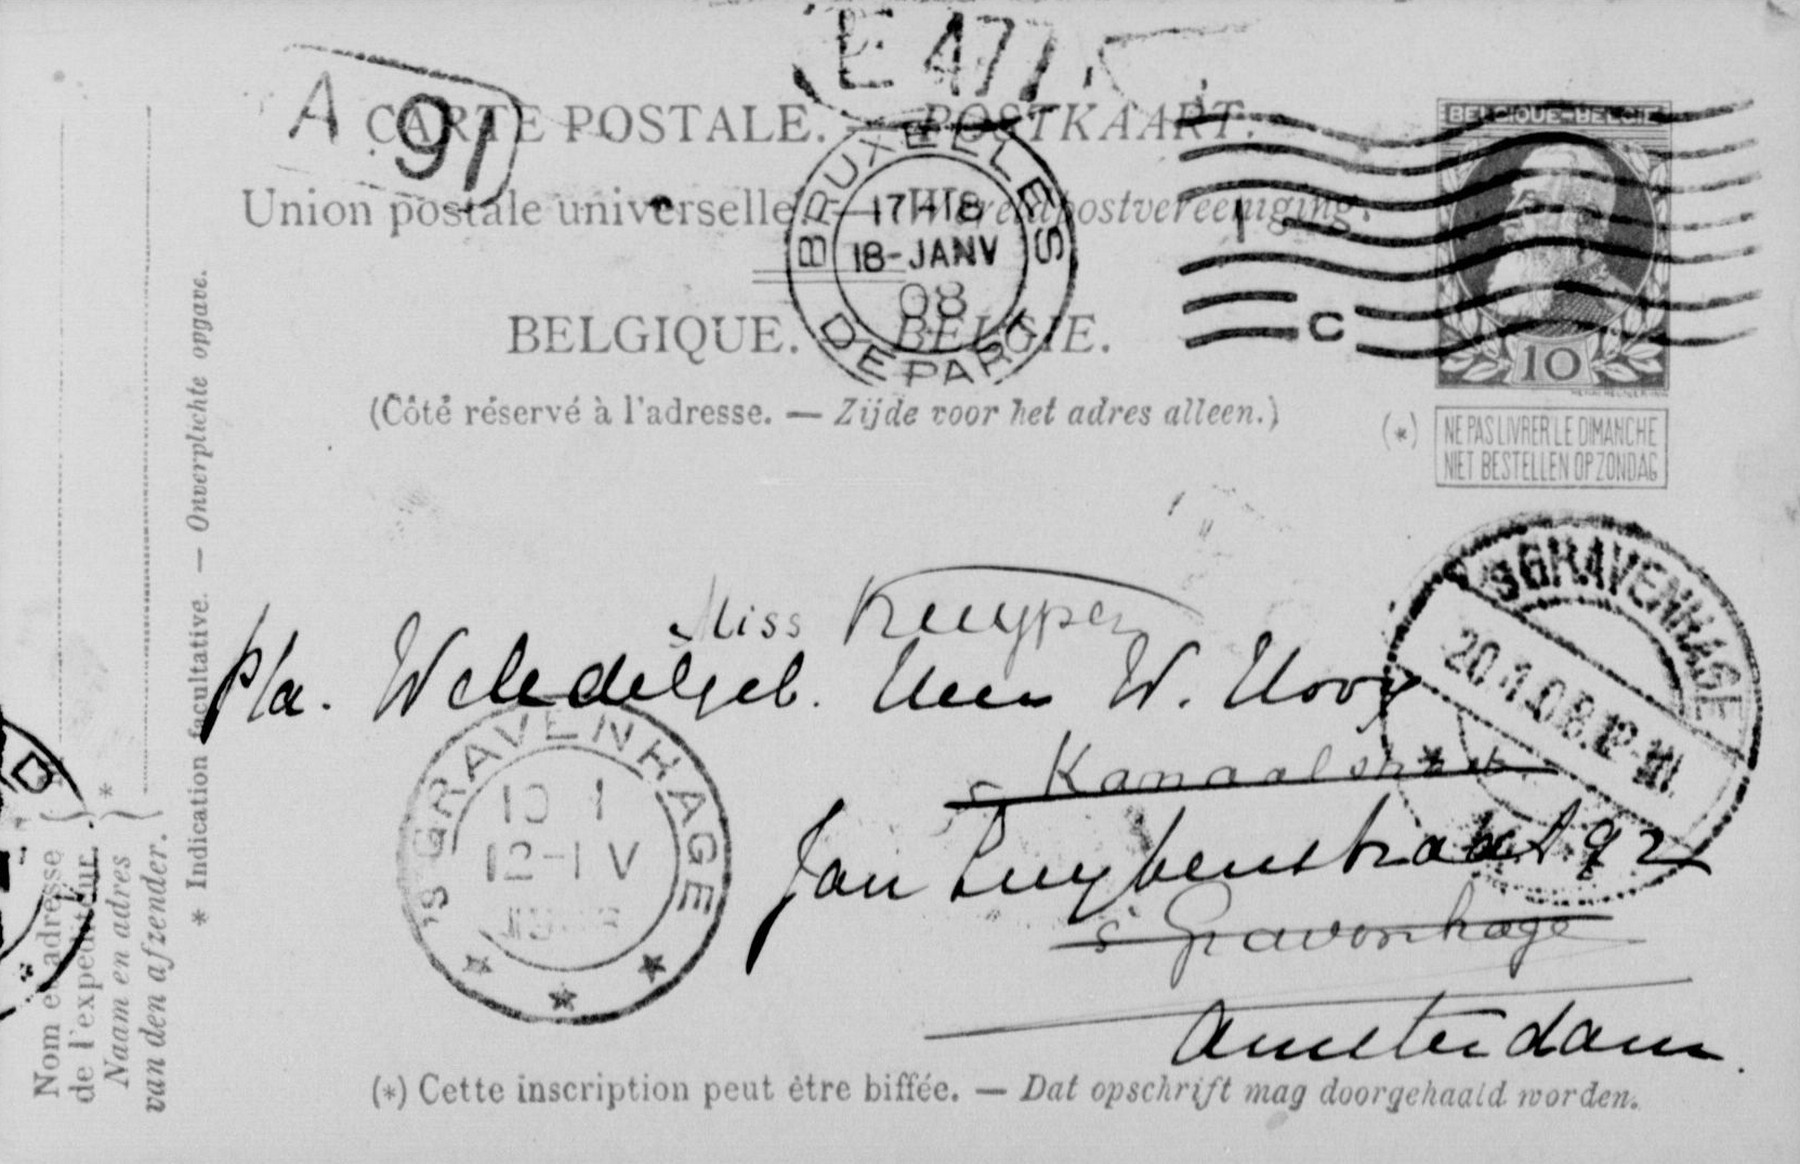 E 477
A 91
CARTE POSTALE. — POSTKAART.
Union postale universelle. — Wereldpostvereeniging.
BRUXELLES
17-18
18-JANV
08
DEPART
1
C
BELGIQUE-BELGIË
10
BELGIQUE. BELGIE.
(Côté réservé à l'adresse. — Zijde voor het adres alleen.)
(*) NE PAS LIVRER LE DIMANCHE
NIET BESTELLEN OP ZONDAG
'SGRAVENHAGE
20.1.08.12-1N.
Miss Kuyper
p/a. Weledelgeb. Heer W. Hovy
Kanaalstraat
Jan Luykenstraat 92
s' Gravenhage
Amsterdam.
'S GRAVENHAGE
12-1 V
(*) Cette inscription peut être biffée. — Dat opschrift mag doorgehaald worden.
* Indication facultative. — Onverplichte opgave.
Nom et adresse
de l'expéditeur.
Naam en adres
van den afzender.
*